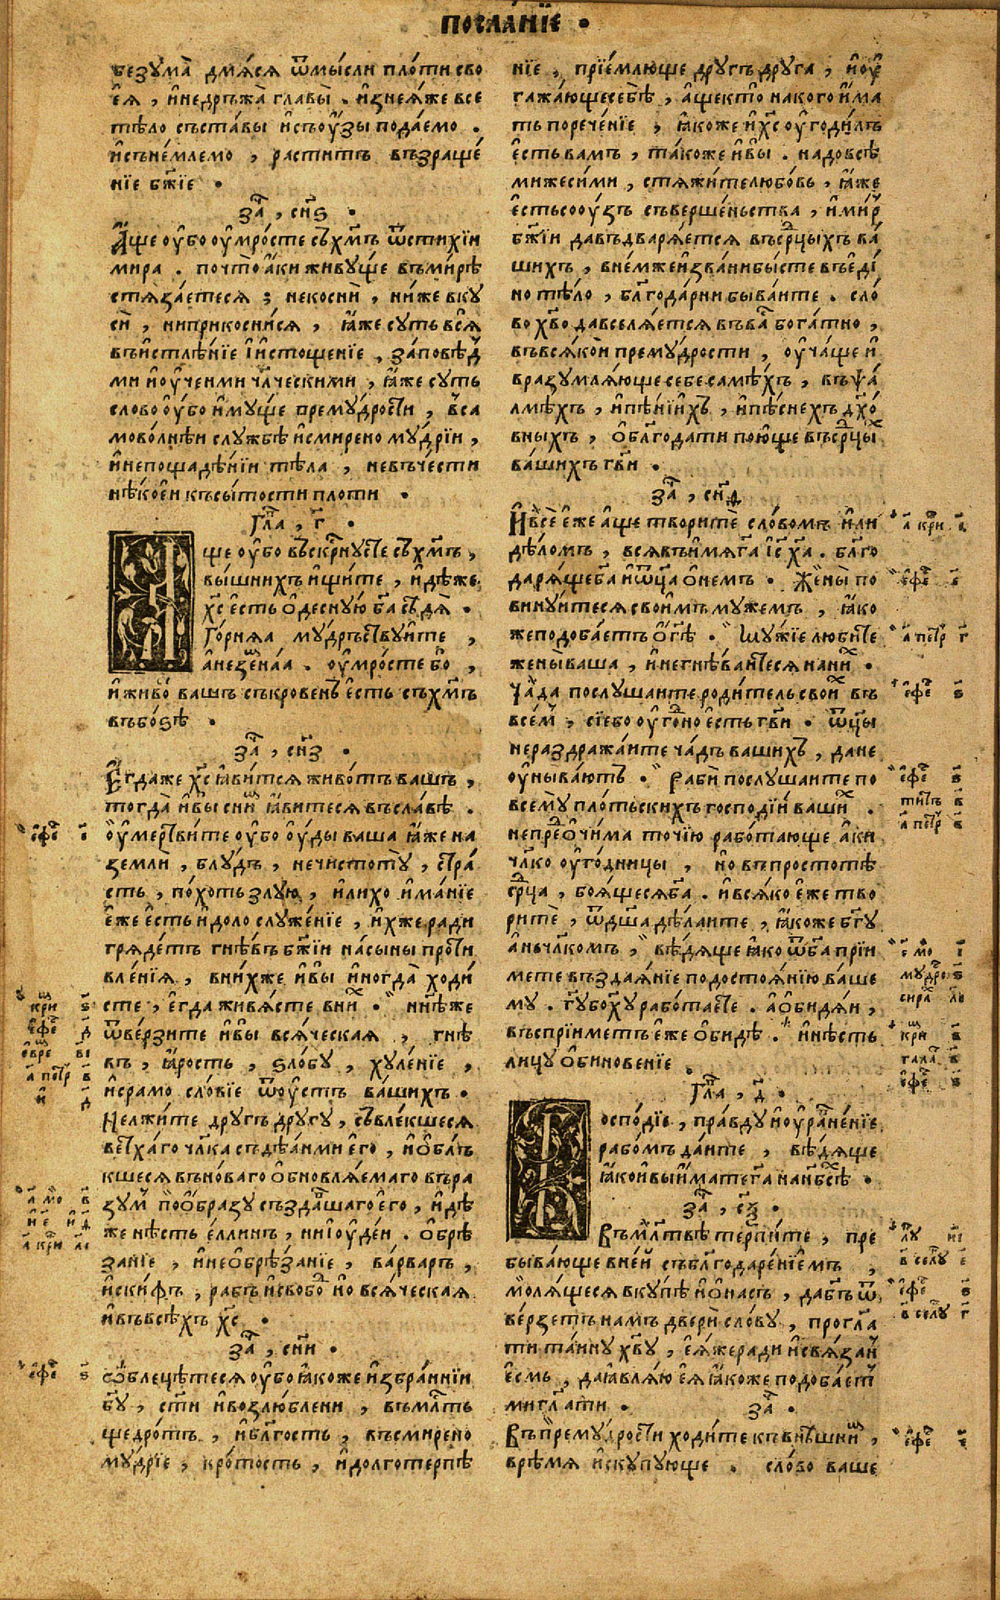 посла́нїе •
безума̀ дмѧ́сѧ ѿмы́сли пло́ти сво
еѧ̀ , и҆недръжа̀ главы̀ . и҆знеѧ́же все
тѣ́ло съста́вы и҆съоу́зы подаемо .
и҆сънемлемо , раститъ възраще́
нїе бж҃їе •
за҄ , сн҃ѕ •
А҆́ще оу҆́бо оу҆мро́сте съх҃мъ ѿстихїи
мира . почто̀ а҆́ки живу́ще въми́рѣ
стѧза́етесѧ ; некоснѝ , ни́же вку
сѝ , ниприкосни́сѧ , ꙗ҆́же суть всѧ̀
въи҆стлѣ́нїе і҆и҆стоще́нїе , за́повѣд
ми и҆оу҆че́нми чл҃ческими , ꙗ҆́же суть
слово оу҆́бо и҆му́ще прему́дрости , вса
мово́лнѣи слу́жбѣ и҆смире́но му́дрїи ,
и҆непощадѣ́нїи тѣ́ла , невъче́сти
нѣ́коеи късы́тости пло́ти •
гла҃ , г҃ •
А҆ще оу҆́бо въскр҃нусте съх҃мъ ,
вы́шнихъ и҆щи́те , и҆дѣ́же
х҃с е҆сть ѡ҆десну́ю б҃а сѣдѧ̀ •
Го́рнѧѧ му́дръствуите ,
а҆незе́мнаа . оу҆мро́сте бо ,
и҆живо́ вашъ съкрове́нъ е҆сть съх҃мъ
въбо́ѕѣ •
за҄ , сн҃з •
Е҆гда́же х҃с ꙗ҆ви́тсѧ живо́тъ вашъ ,
тогда̀ и҆вы̀ сни́м ꙗ҆́витесѧ въсла́вѣ .
оу҆мертви́те оу҆́бо оу҆́ды ваша ꙗ҆́же на
земли , блу́дъ , нечистоту̀ , стра́
сть , по́хоть злу́ю , и҆лихо и҆ма́нїе
е҆́же е҆сть и҆доло служе́нїе , и҆́хже ради
грѧде́тъ гнѣ́въ бж҃їи на́сыны проти
вле́нїѧ , вни́хже и҆вы̀ и҆ногда̀ ходи́
сте , е҆гда живѧ́сте вни́х • ни҃нѣже
ѿве́рзите и҆вы̀ всѧ́ческаа , гнѣ
въ , ꙗ҆́рость , ѕло́бу , хуле́нїе ,
и҆срамо сло́вїе ѿоу҆стъ ва́шихъ •
Нелжи́те другъ другу , съвле́кшесѧ
ветхаго чл҃ка съдѣѧ́нми его̀ , и҆ѡ҆блъ
кшесѧ вънова́го ѡ҆бновлѧ́емаго вера
зум по́ѡ҆бразу създа́вшаго его̀ , и҆дѣ
же нѣ́сть е҆́ллинъ , нии҆оу҆де́и . ѡ҆брѣ́
занїе , и҆неѡ҆брѣ́занїе , ва́рваръ ,
и҆ски́ѳъ , рабъ и҆свобо́д но всѧ́ческаа
и҆въвсѣ́хъ х҃с •
за҄ , сн҃и •
ѡ҆блецѣ́тесѧ оу҆́бо ꙗ҆́коже и҆збра́ннїи
бг҃у , ст҃и и҆возлю́блени , въмл҃ть
щедро́тъ , и҆бл҃гость , въсмире́но
му́дрїе , кро́тость , и҆долготерпѣ
нїе , прїе́млюще другъ друга , и҆оу҆
гажа́ющесебѣ̀ , а҆́щекто̀ накого и҆́ма
ть порече́нїе , ꙗ҆́коже и҆х҃с оу҆годи́лъ
е҆сть вамъ , та́коже и҆вы̀ . надовсѣ́
мижеси́ми , стѧжи́телюбо́вь , ꙗ҆́же
е҆стьсоу́зъ съверше́ньства , и҆ми́р
бж҃їи давъдварѧ́етсѧ въср҃цыхъ ва́
шихъ , вне́мже и҆зва́нибы́сте въе҆ди́
но тѣ́ло , бл҃года́рни быва́ите . сло́
во хв҃о давселѧ́етсѧ въва́ бога́тно ,
въвсѧ́кои прему́дрости , оу҆ча́ще и҆
вразумлѧ́юще себе самѣ́хъ , въѱа́
лмѣхъ , и҆пѣ́нїихъ , и҆пѣ́снехъ дх҃о
вныхъ , ѡ҆бл҃годати пою́ще въср҃цых
ва́шихъ гв҃и •
за҄ , сн҃д
И҆всѐ е҆́же а҆́ще твори́те сло́вомъ и҆ли
дѣ́ломъ , всѧвъи҆́мѧ г҃а і҆с҃ х҃а . бл҃го
дарѧ́ще б҃а и҆ѿц҃а ѡ҆не́мъ • Жены̀ по
вину́итесѧ свои҆́мъ му́жемъ , ꙗ҆ко
жеподоба́етъ ѡ҆г҃ѣ • Му́жїе люби́те
жены̀ ваша , и҆негнѣ́ваитесѧ нани́х •
Ча́да послу́шаите роди́тель свои́х въ
всем , сїе́бо оу҆го́дно е҆сть гв҃и • ѿц҃ы
нераздража́ите ча́дъ вашихъ , дане
оу҆ныва́ютъ • Рабѝ послу́шаите по
всему плотьски́хъ господі́и ваши́х .
непре́дѡ҆чима то́чїю рабо́тающе а҆ки
чл҃ко оу҆го́дницы , но въпростотѣ̀
ср҃ца , боѧ́щесѧ б҃а . и҆всѧ́ко е҆́же тво
ритѐ , ѿдш҃а дѣ́лаите , ꙗ҆́коже бг҃у
а҆не́члкомъ , вѣ́дѧще ꙗ҆́ко ѿб҃а прїи
мете въздаѧ́нїе подостоѧ́нїю ваше
му . гв҃у бо х҃у рабо́таете . а҆ѡ҆би́дѧи ,
въспрїи́метъ е҆́же ѡ҆бидѣ̀ . и҆нѣ́сть
лицу ѡ҆бинове́нїе .
гла҃ , д҃ •
Госпо́дїе , пра́вду и҆оу҆равне́нїе
рабо́мъ да́ите , вѣ́дѧще
ꙗ҆́кои҆вы и҆́мате г҃а нан҃бсѣ̀ •
за҄ , сѯ҃ •
Въмл҃твѣ терпи́те , пре
быва́юще вне́и събл҃годаре́нїемъ ,
мо́лѧщесѧ вку́пѣ и҆ѡ҆на́съ , даб҃ъ ѿ
ве́рзетъ намъ двери сло́ву , прогл҃а
ти та́ину хв҃у , е҆ѧ́жеради и҆свѧ́зан
е҆смь , даꙗ҆влю́ ю ꙗ҆́коже подоба́ет
ми гл҃ати • за҄ .
Въпрему́дрости ходи́те къвнѣ́шним ,
врѣ́мѧ и҆скупу́юще . сло́во ваше